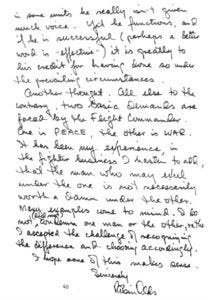 in some units he really isn't given
much voice. Yet he functions, and
if he is successful (perhaps a better
word is "effective") it is greatly to
his credit for having done so under
the prevailing circumstances
Another thought. All else to the
contrary, two basic Demands are
faced by the Flight Commander.
One is PEACE, the other is WAR.
It has been my experience, in
the fighter business I hasten to add,
that the man who may excel
under the one is not necessarily
worth a Damn under the other.
Many examples come to mind. I do
not condemn one man or the other,
I accepted the challenge of recognizing
the difference and choosing accordingly.
I hope some of this makes sense.
Sincerely
Robin Olds
40